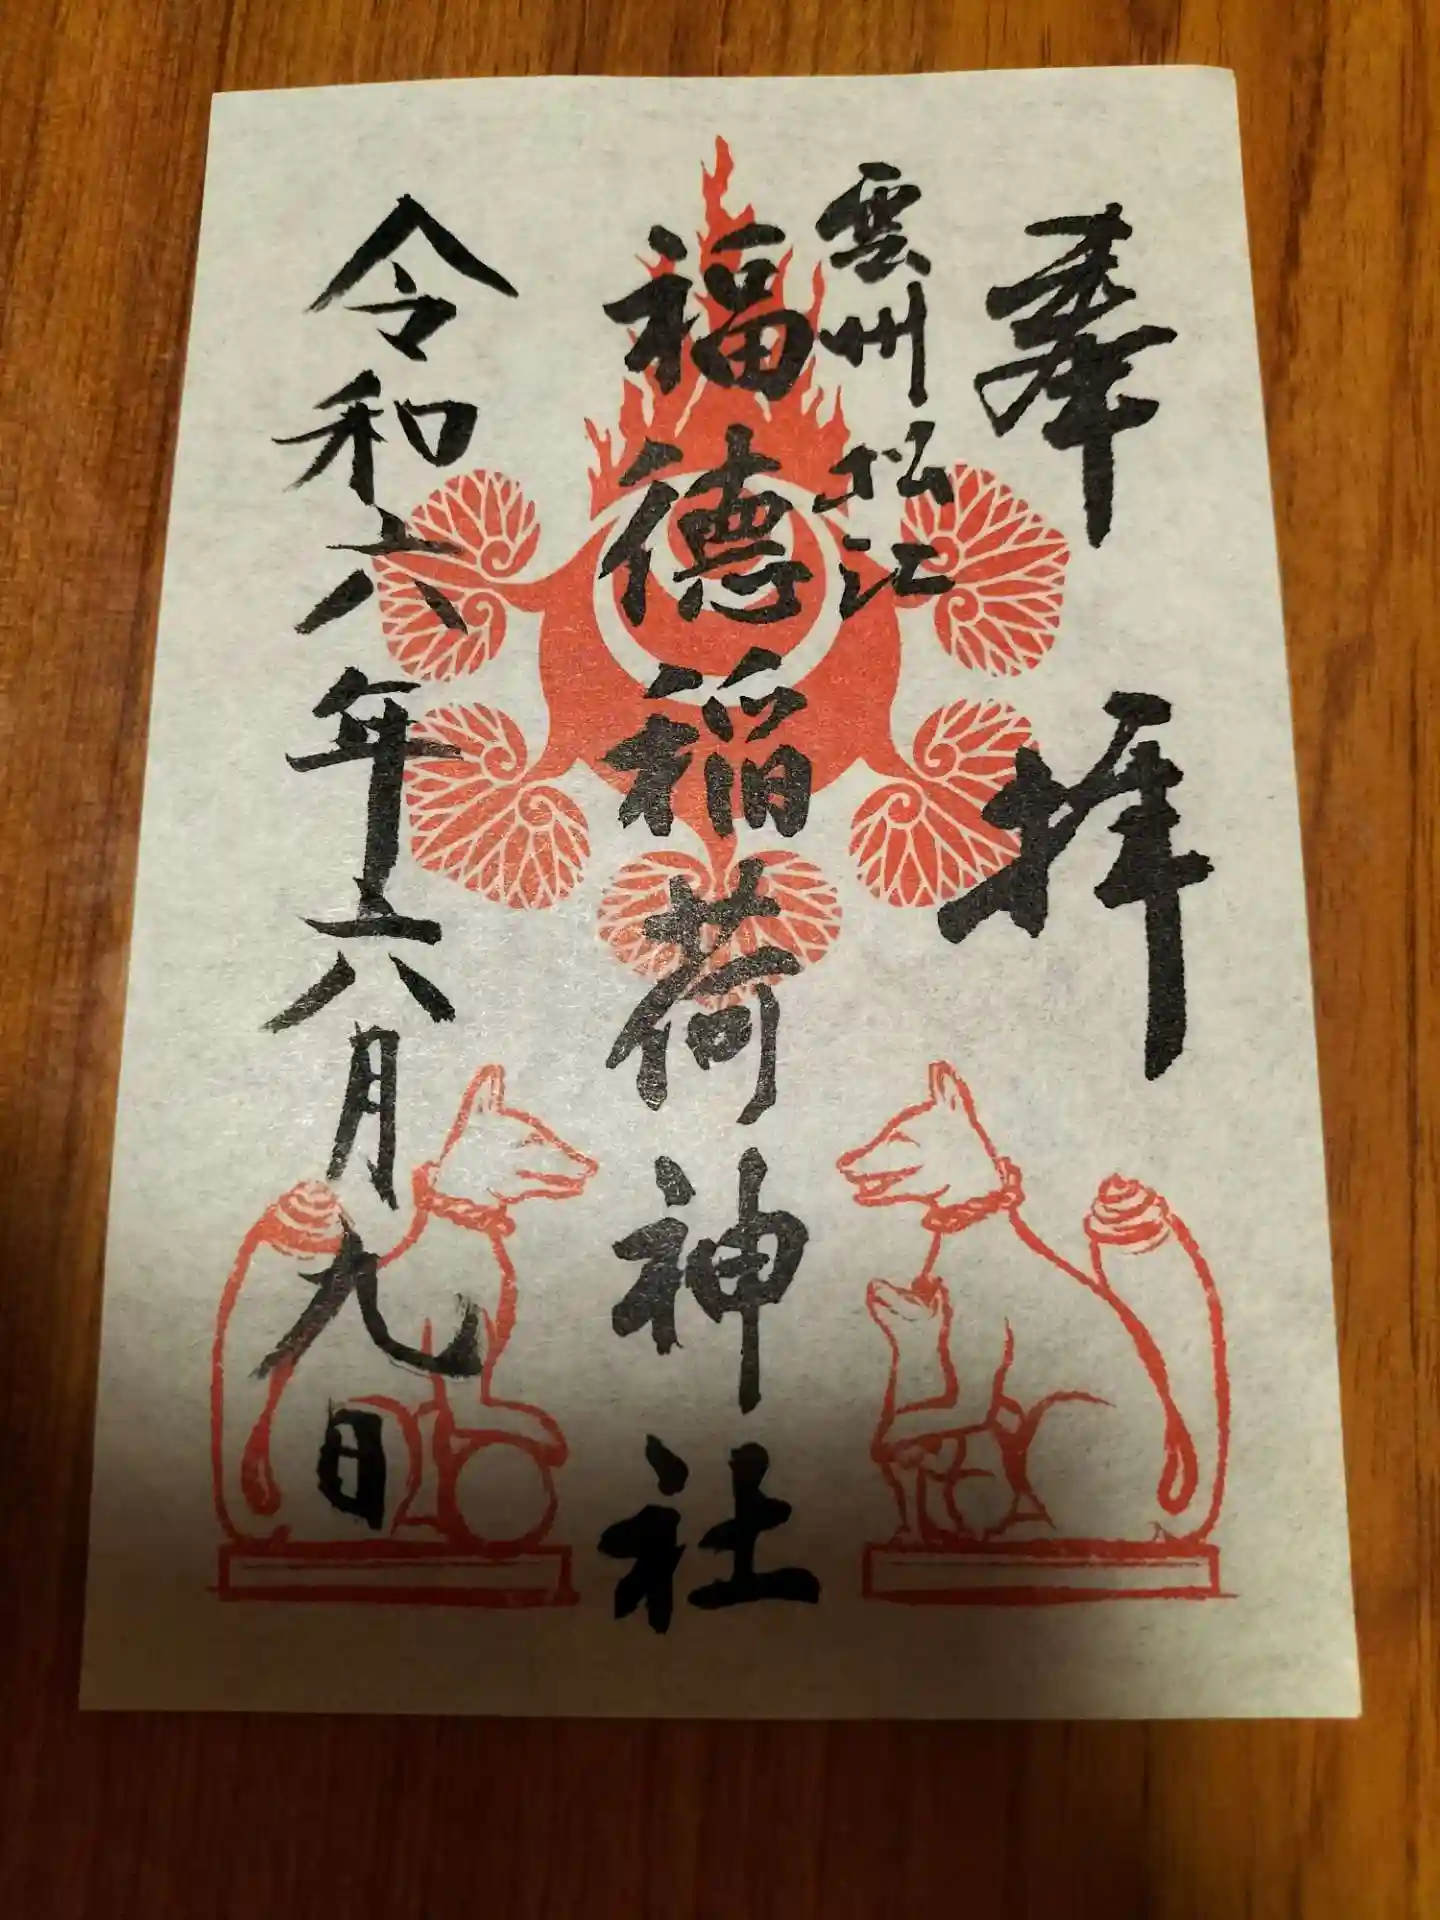 奉拝
雲州松江
福德稲荷神社
令和六年六月九日